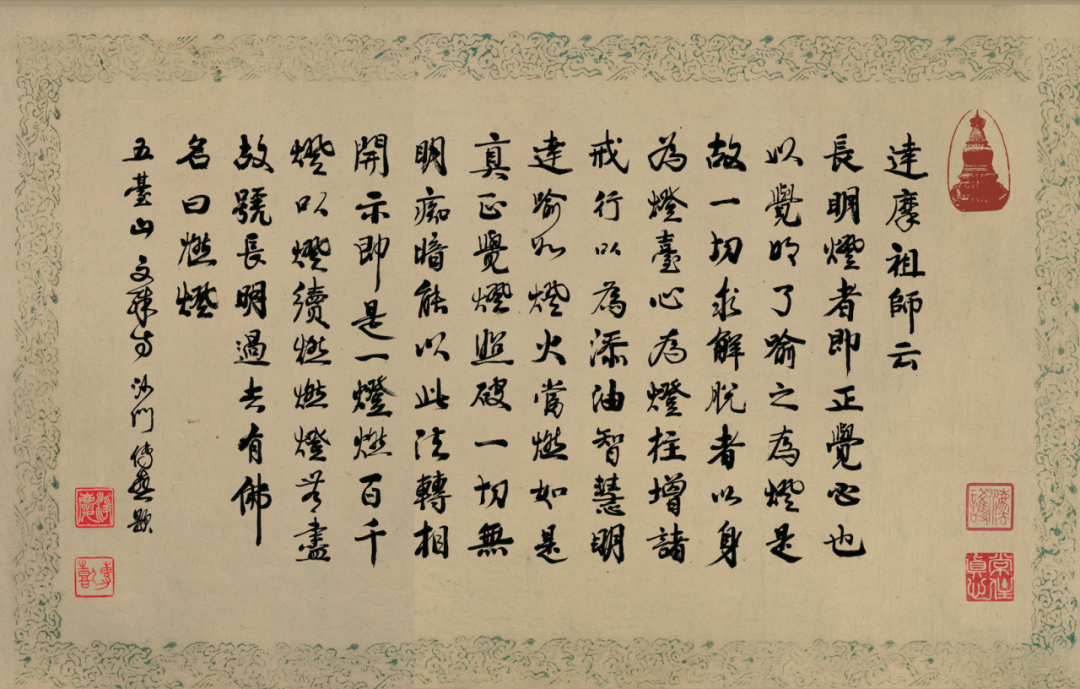 達摩祖師云
長明燈者即正覺心也
以覺明了喻之為燈是
故一切求解脫者以身
為燈臺心為燈炷增諸
戒行以為添油智慧明
達喻如燈火當燃如是
真正覺燈照破一切無
明痴暗能以此法轉相
開示即是一燈燃百千
燈以燈續燃燃燈無盡
故號長明過去有佛
名曰燃燈
五臺山 文殊寺 沙門傳喜題
法護
常住真心
傳喜